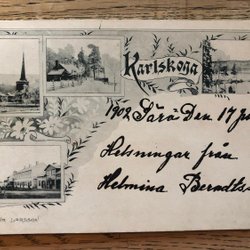 Karlskoga
1902 Särå Den 17
Helsningar från
Helmina Berndts
LARSSON